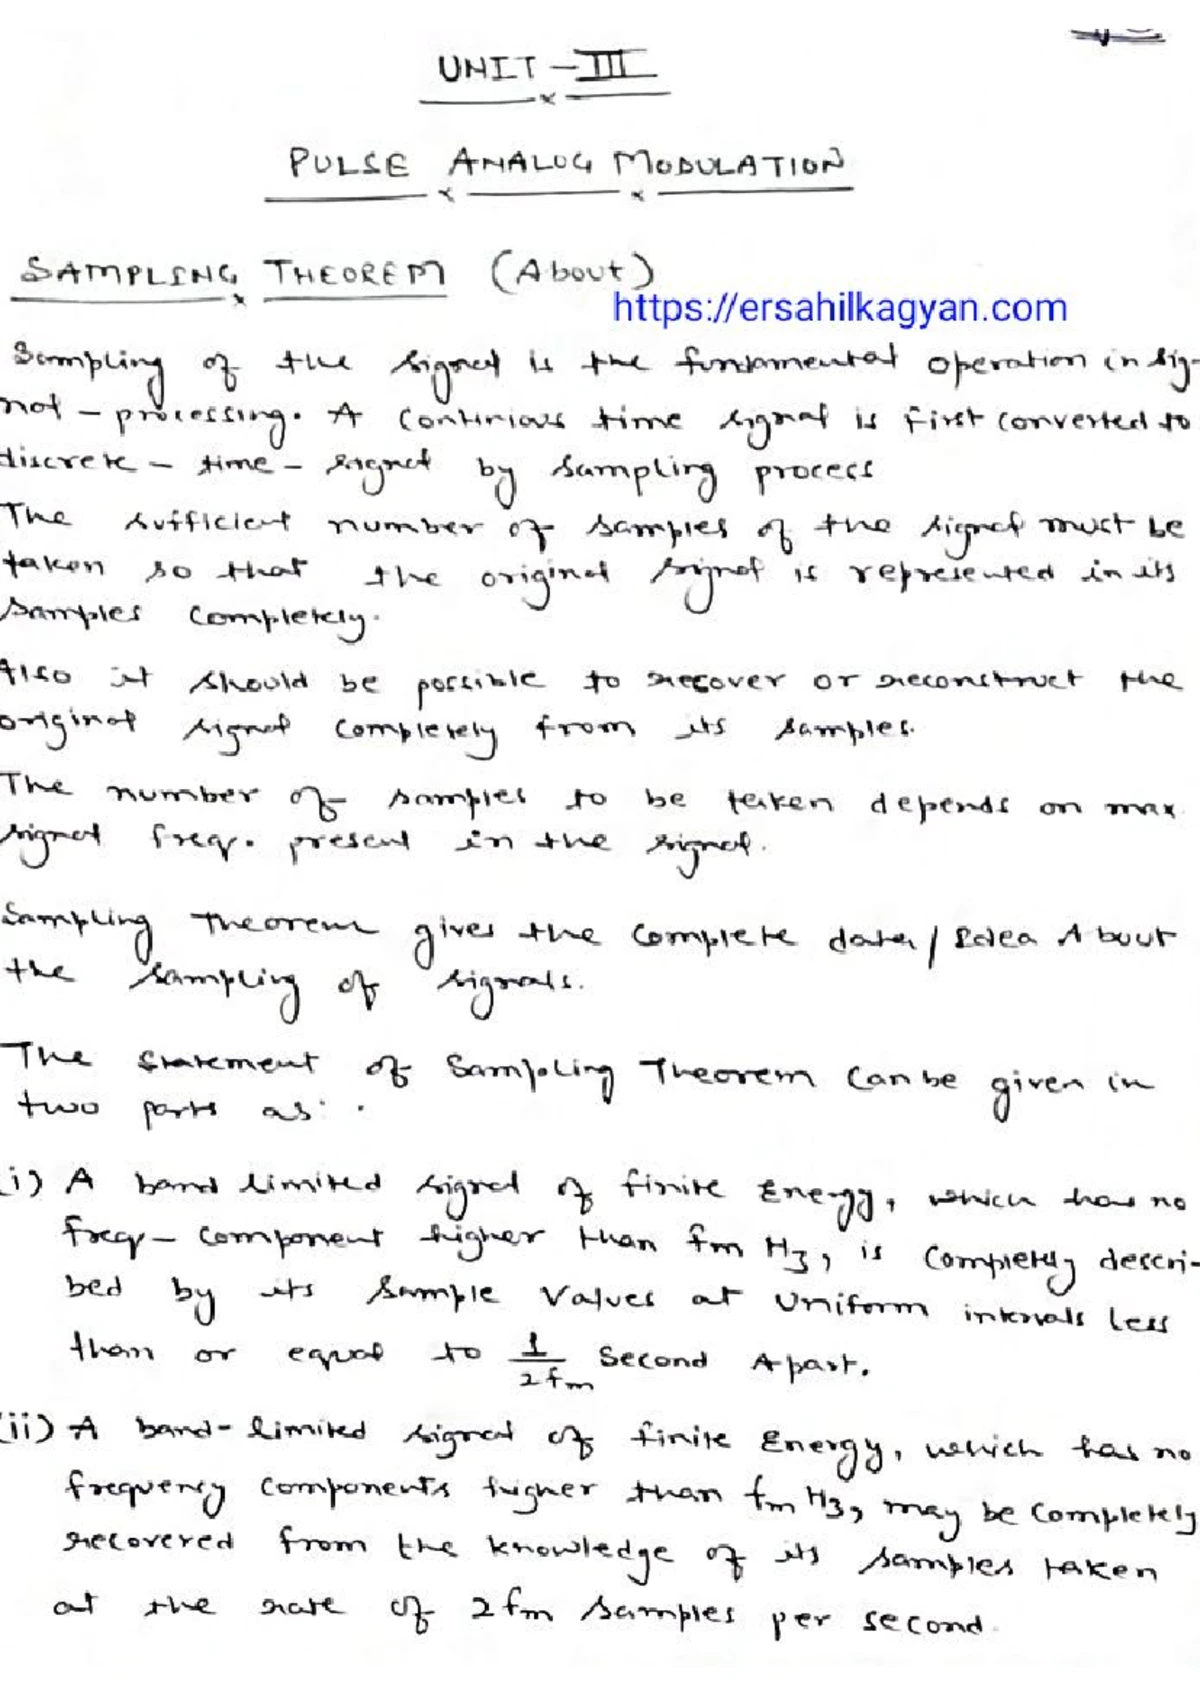 UNIT - III
PULSE ANALOG MODULATION
SAMPLING THEOREM (About)
https://ersahilkagyan.com
Sampling of the signal is the fundamental operation in sig-
nal - processing. A continious time signal is first converted to
discrete - time - signal by sampling process
The sufficient number of samples of the signal must be
taken so that the original signal is represented in its
samples completely.
Also it should be possible to recover or reconstruct the
original signal completely from its samples.
The number of samples to be taken depends on max
signal freq. present in the signal.
Sampling Theorem gives the complete data / Idea About
the sampling of signals.
The statement of Sampling Theorem can be given in
two parts as:
(i) A band limited signal of finite Energy, which has no
freq- component higher than fm Hz, is completely descri-
bed by its sample values at uniform intervals less
than or equal to 1/2fm second Apart.
(ii) A band-limited signal of finite Energy, which has no
frequency components higher than fm Hz, may be completely
recovered from the knowledge of its samples taken
at the rate of 2fm samples per second.